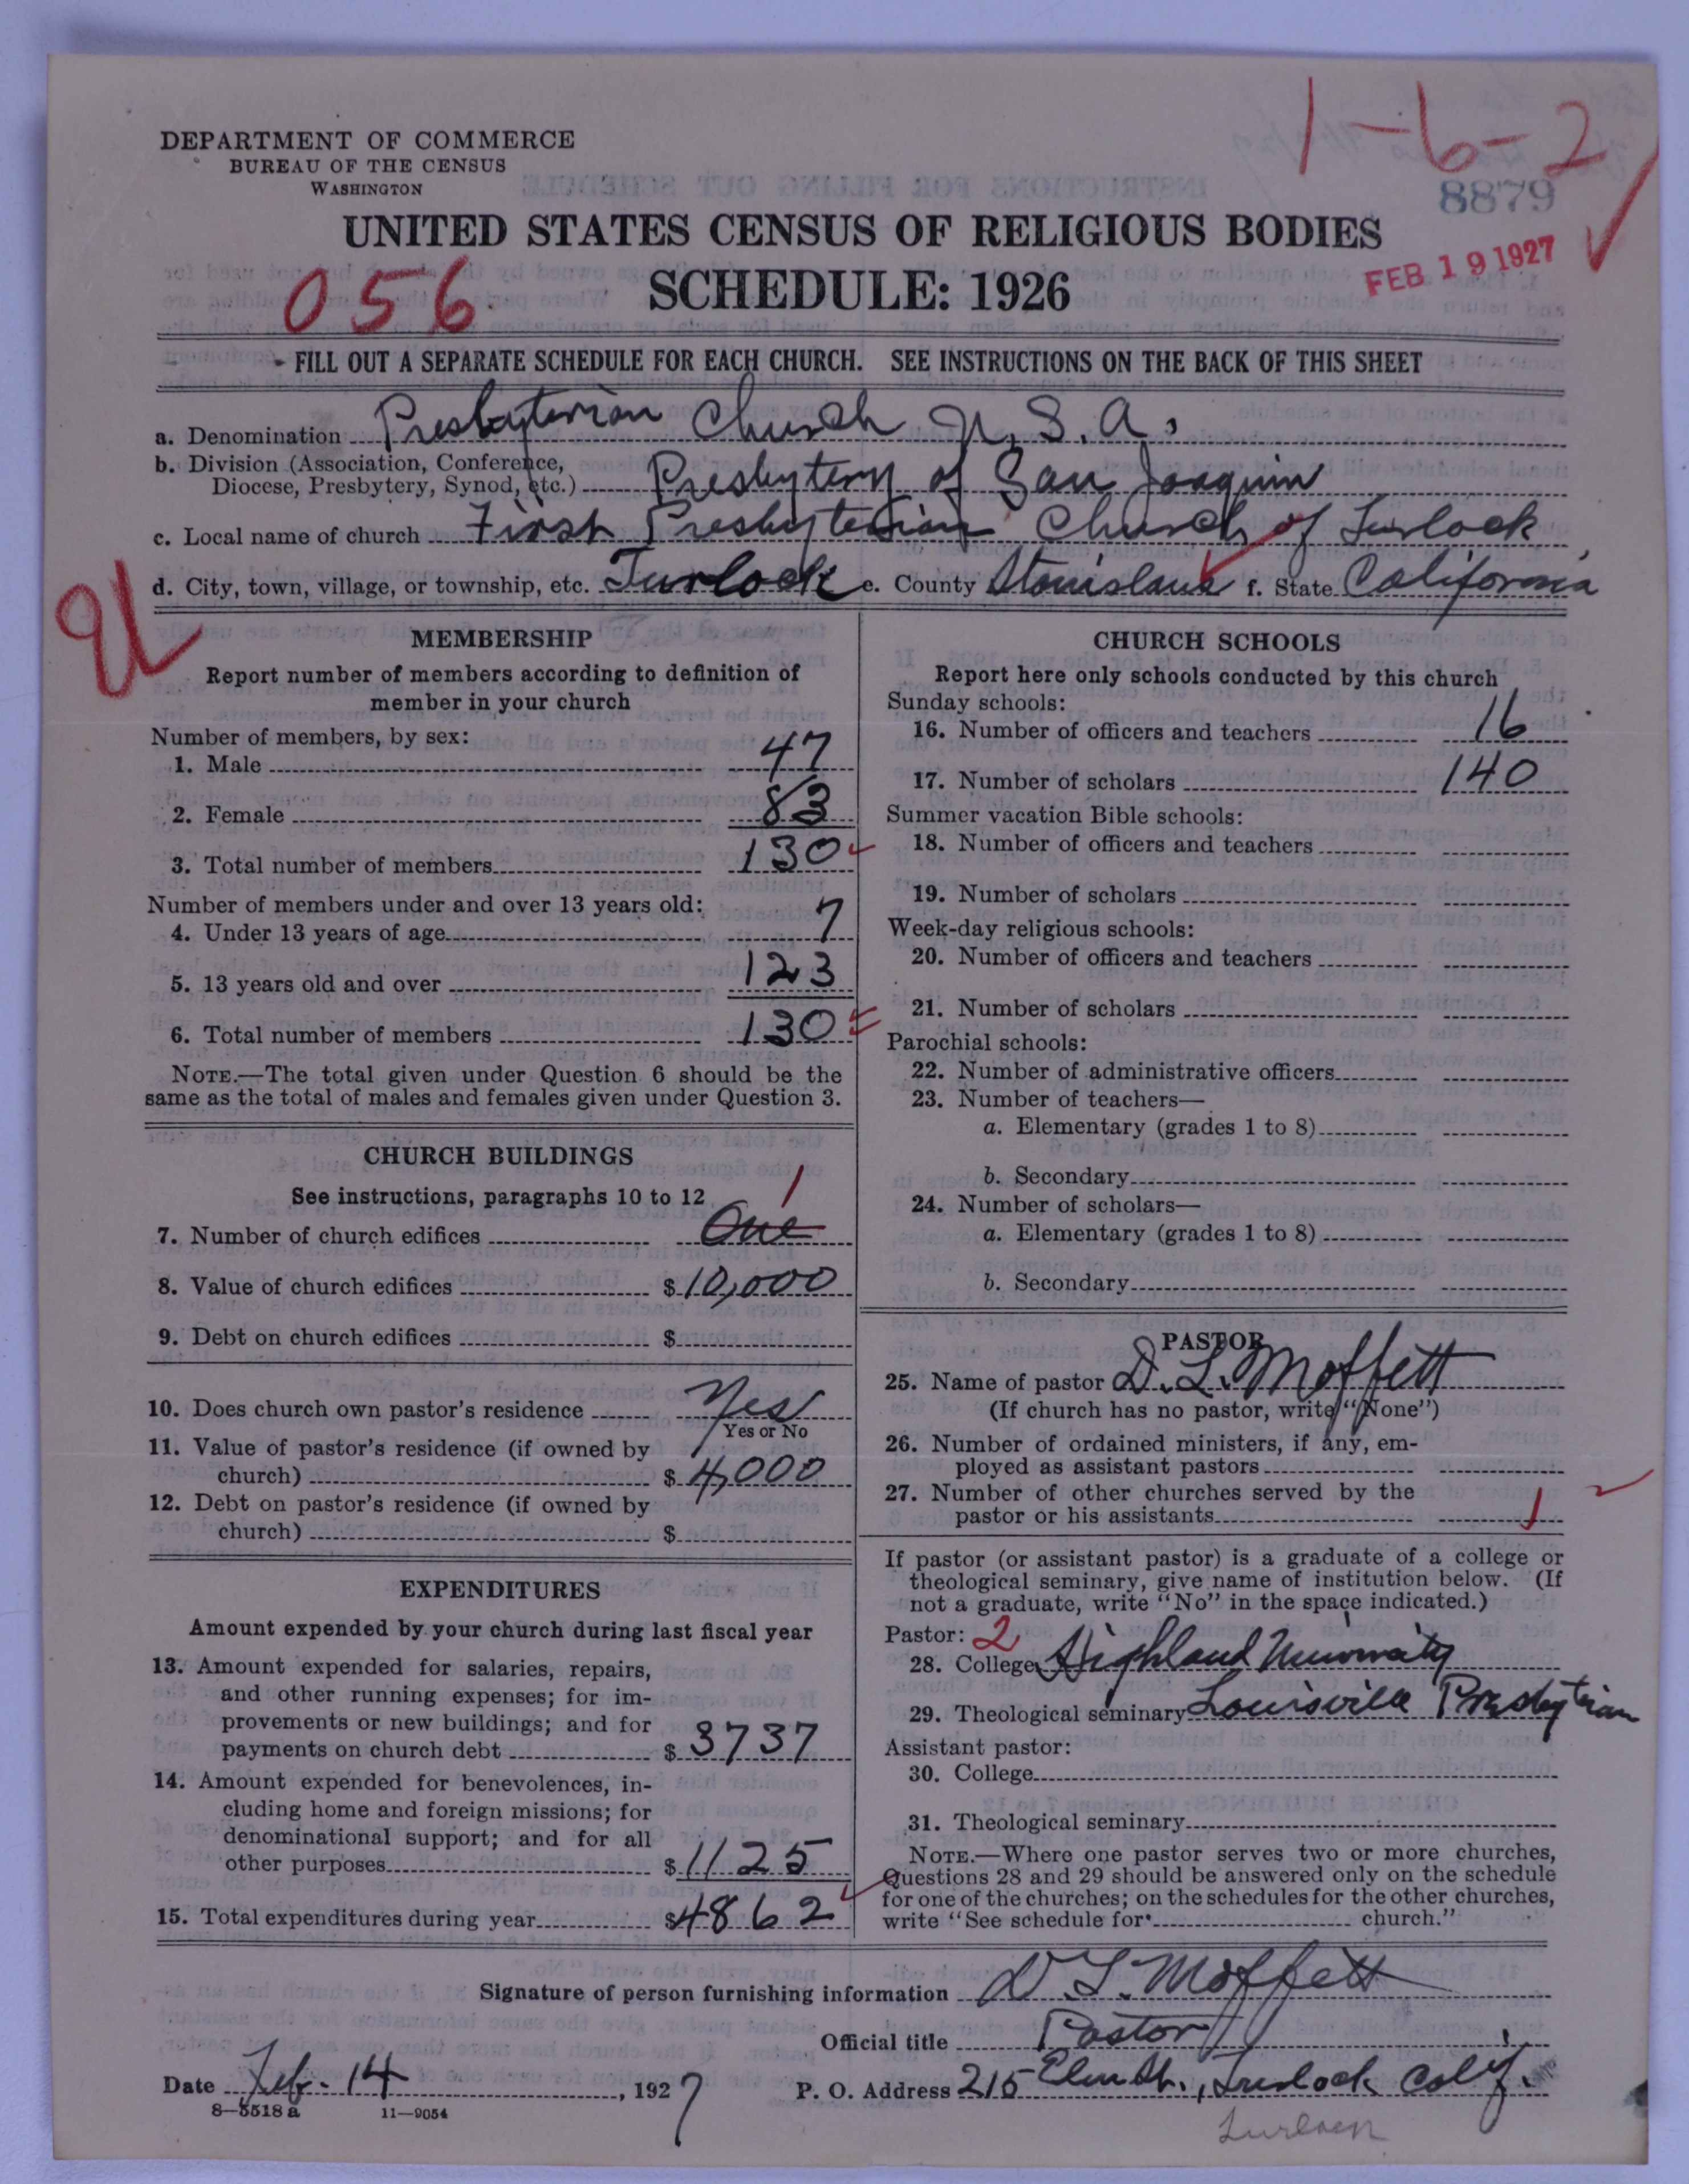 1-6-2
DEPARTMENT OF COMMERCE
BUREAU OF THE CENSUS
WASHINGTON
8879
UNITED STATES CENSUS OF RELIGIOUS BODIES
FEB 19 1927
056
SCHEDULE: 1926
FILL OUT A SEPARATE SCHEDULE FOR EACH CHURCH. SEE INSTRUCTIONS ON THE BACK OF THIS SHEET
a. Denomination Presbyterian Church U.S.A.
b. Division (Association, Conference,
Diocese, Presbytery, Synod, etc.) Presbytery of San Joaquin
c. Local name of church First Presbyterian Church of Turlock
d. City, town, village, or township, etc. Turlock e. County Stanislaus f. State California
MEMBERSHIP
Report number of members according to definition of
member in your church
Number of members, by sex:
1. Male 47
2. Female 83
3. Total number of members 130
Number of members under and over 13 years old:
4. Under 13 years of age 7
5. 13 years old and over 123
6. Total number of members 130
NOTE.—The total given under Question 6 should be the
same as the total of males and females given under Question 3.
CHURCH BUILDINGS
See instructions, paragraphs 10 to 12
1
7. Number of church edifices One
8. Value of church edifices $10,000
9. Debt on church edifices $
10. Does church own pastor's residence Yes
Yes or No
11. Value of pastor's residence (if owned by
church) $ 4,000
12. Debt on pastor's residence (if owned by
church) $
EXPENDITURES
Amount expended by your church during last fiscal year
13. Amount expended for salaries, repairs,
and other running expenses; for im-
provements or new buildings; and for
payments on church debt $ 3737
14. Amount expended for benevolences, in-
cluding home and foreign missions; for
denominational support; and for all
other purposes $ 1125
15. Total expenditures during year $4862
CHURCH SCHOOLS
Report here only schools conducted by this church
Sunday schools:
16. Number of officers and teachers 16
17. Number of scholars 140
Summer vacation Bible schools:
18. Number of officers and teachers
19. Number of scholars
Week-day religious schools:
20. Number of officers and teachers
21. Number of scholars
Parochial schools:
22. Number of administrative officers
23. Number of teachers—
a. Elementary (grades 1 to 8)
b. Secondary
24. Number of scholars—
a. Elementary (grades 1 to 8)
b. Secondary
PASTOR
25. Name of pastor D. L. Moffett
(If church has no pastor, write "None")
26. Number of ordained ministers, if any, em-
ployed as assistant pastors
27. Number of other churches served by the
pastor or his assistants 1
If pastor (or assistant pastor) is a graduate of a college or
theological seminary, give name of institution below. (If
not a graduate, write "No" in the space indicated.)
Pastor: 2
28. College Highland University
29. Theological seminary Louisville Presbyterian
Assistant pastor:
30. College
31. Theological seminary
NOTE.—Where one pastor serves two or more churches,
Questions 28 and 29 should be answered only on the schedule
for one of the churches; on the schedules for the other churches,
write "See schedule for church."
Signature of person furnishing information D. L. Moffett
Official title Pastor
Date Feb. 14, 1927 P. O. Address 215 Elm St., Turlock Calif.
8—5518 a 11—9054